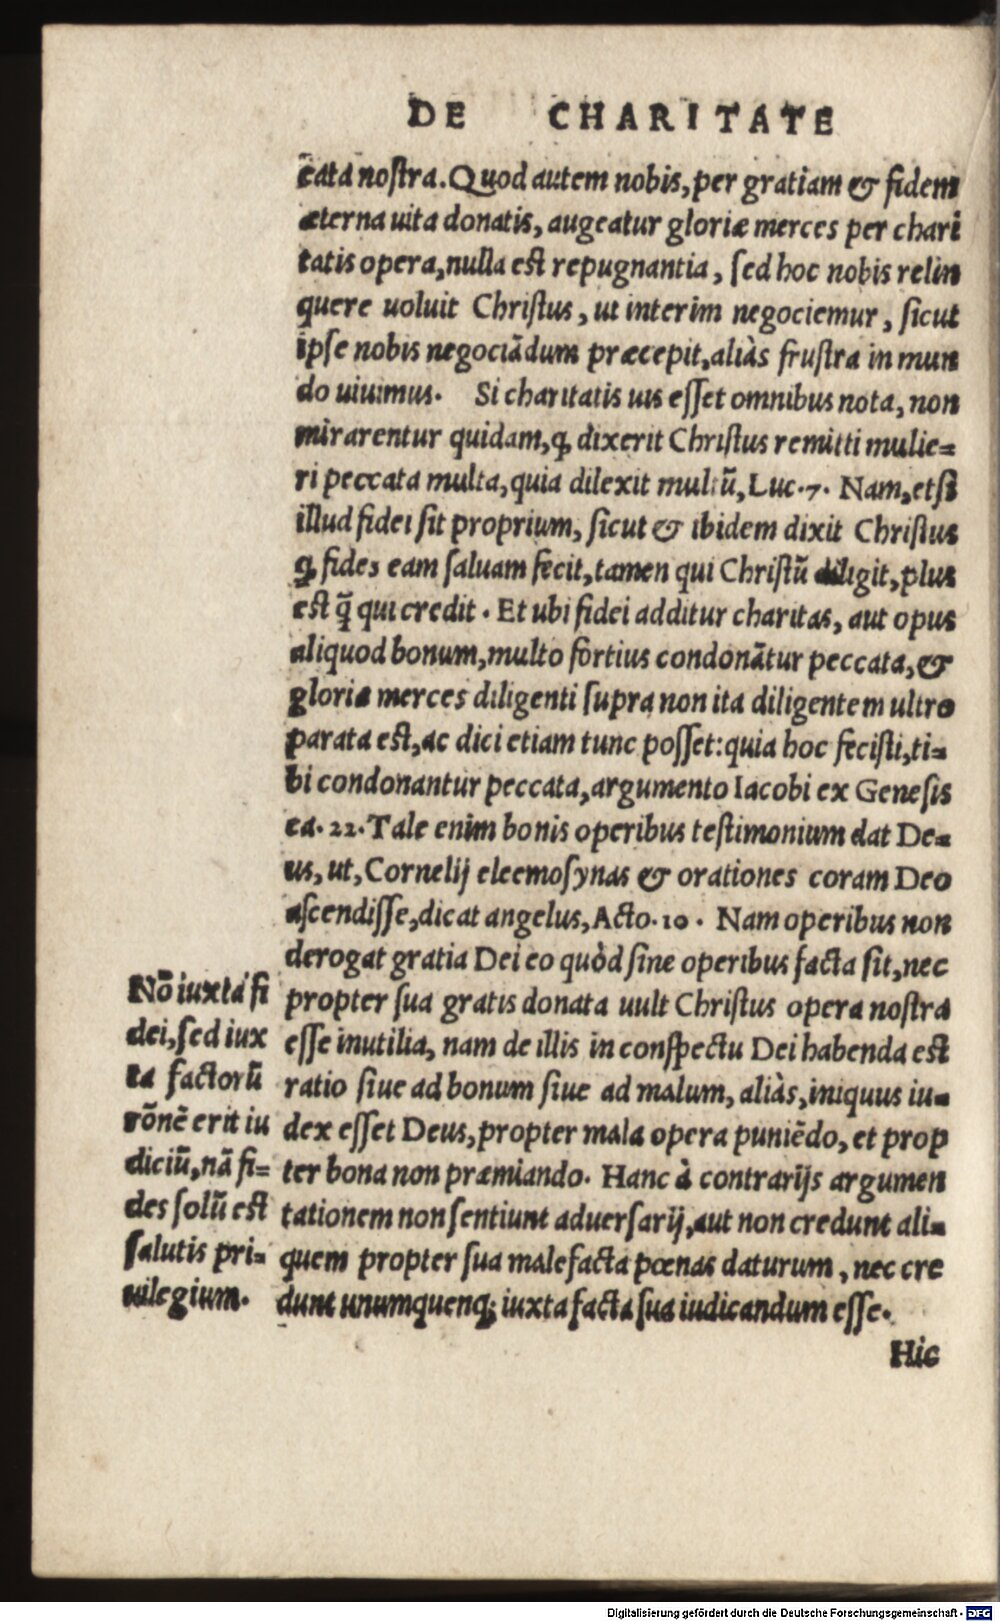 DE CHARITATE
cata nostra. Quod autem nobis, per gratiam & fidem
æterna uita donatis, augeatur gloriæ merces per chari
tatis opera, nulla est repugnantia, sed hoc nobis relin
quere uoluit Christus, ut interim negociemur, sicut
ipse nobis negociādum præcepit, aliàs frustra in mun
do uiuimus. Si charitatis uis esset omnibus nota, non
mirarentur quidam, ꝙ dixerit Christus remitti mulie-
ri peccata multa, quia dilexit multū, Luc. 7. Nam, etsi
illud fidei sit proprium, sicut & ibidem dixit Christus
ꝙ fides eam saluam fecit, tamen qui Christū diligit, plus
est q̄ qui credit. Et ubi fidei additur charitas, aut opus
aliquod bonum, multo fortius condonātur peccata, &
gloria merces diligenti supra non ita diligentem ultro
parata est, ac dici etiam tunc posset: quia hoc fecisti, ti-
bi condonantur peccata, argumento Iacobi ex Genesis
ca. 22. Tale enim bonis operibus testimonium dat De-
us, ut, Cornelij eleemosynas & orationes coram Deo
ascendisse, dicat angelus, Acto. 10. Nam operibus non
derogat gratia Dei eo quòd sine operibus facta sit, nec
propter sua gratis donata uult Christus opera nostra
esse inutilia, nam de illis in conspectu Dei habenda est
ratio siue ad bonum siue ad malum, aliàs, iniquus iu-
dex esset Deus, propter mala opera puniēdo, et prop
ter bona non præmiando. Hanc à contrarijs argumen
tationem non sentiunt aduersarij, aut non credunt ali-
quem propter sua malefacta pœnas daturum, nec cre
dunt unumquenq; iuxta facta sua iudicandum esse.
Nō iuxta fi
dei, sed iux
ta factorū
rōnē erit iu
diciū, nā fi-
des solū est
salutis pri-
uilegium.
Hic
Digitalisierung gefördert durch die Deutsche Forschungsgemeinschaft - DFG